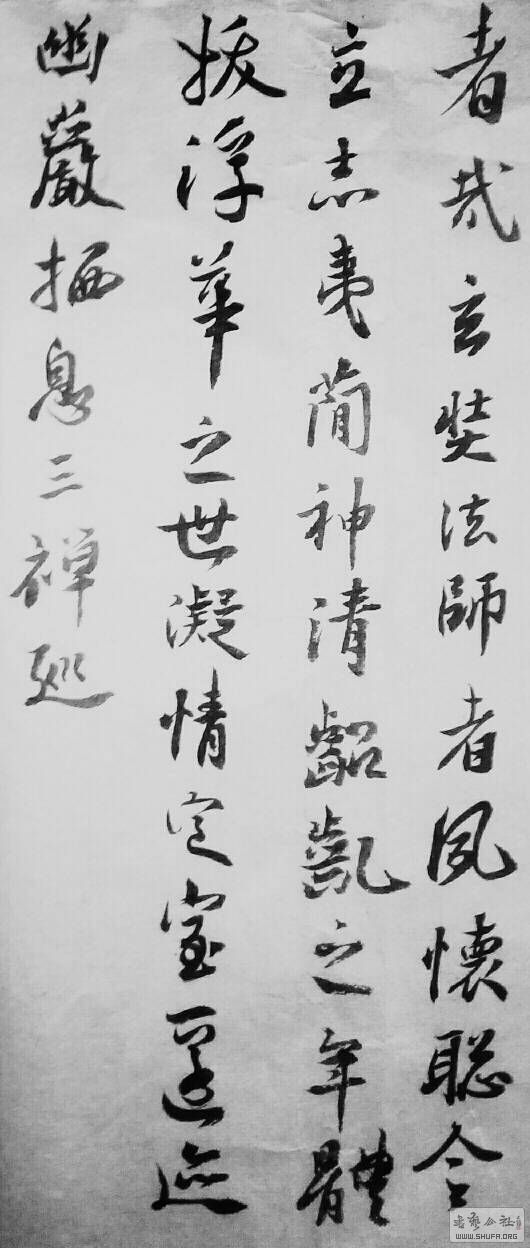 者哉玄奘法師者夙懷聡令
立志夷蕳神清齠齓之年體
拔浮華之世凝情定室匿迹
幽巖栖息三禅廵
WWW.SHUFA.ORG